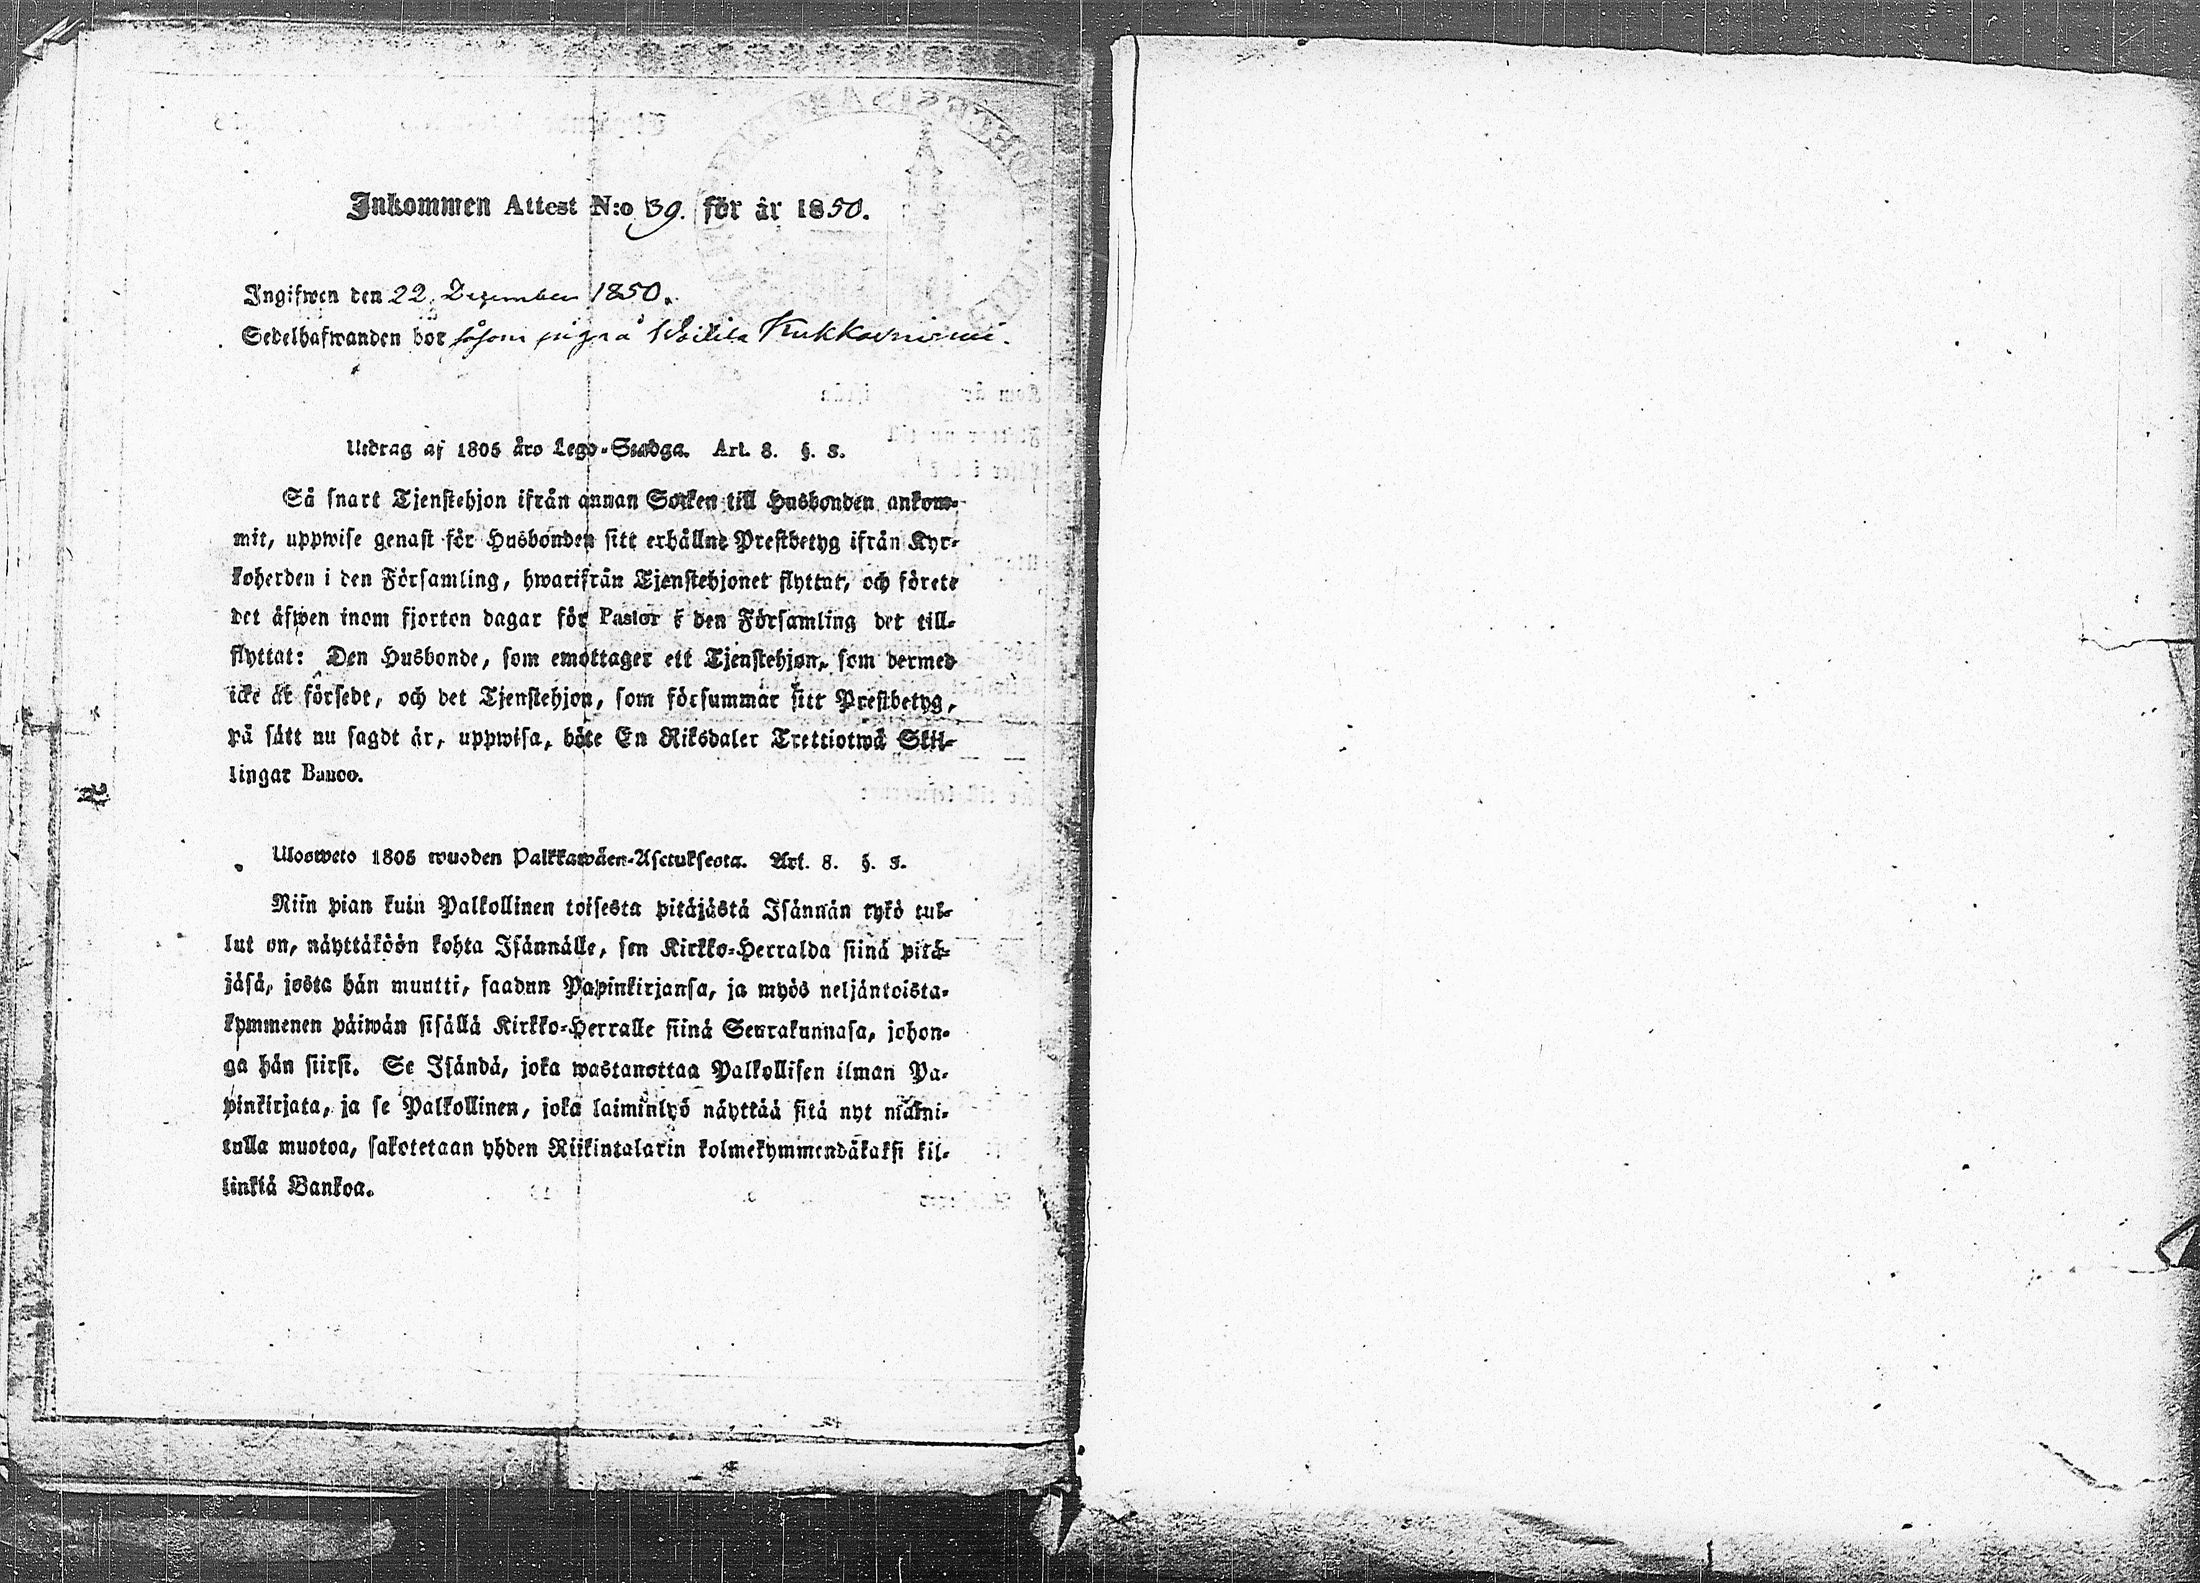 Inkommen Attest N:o 39. för år 1850.
Ingifwen den 22. Dezember 1850.
Sedelhafwanden bor såsom piga å Kukkoniemi.
Utdrag af 1805 års Lego-Stadga. Art. 8. §. 3.
Så snart Tjenstehjon ifrån annan Socken till Husbonden ankom-
mit, uppwise genast för Husbonden sitt erhållne Prestbetyg ifrån Kyr-
koherden i den Församling, hwarifrån Tjenstehjonet flyttat, och förete
det äfwen inom fjorton dagar för Pastor i den Församling det till-
flyttat: Den Husbonde, som emottager ett Tjenstehjon, som dermed
icke är försedt, och det Tjenstehjon, som försummar sitt Prestbetyg,
på sätt nu sagdt är, uppwisa, böte En Riksdaler Trettiotwå Skil-
lingar Banco.
Ulosweto 1805 wuoden Palkkawäen-Asetuksesta. Art. 8. §. 3.
Niin pian kuin Palkollinen toisesta pitäjästä Isännän tykö tul-
lut on, näyttäköön kohta Isännälle, sen Kirkko-Herralda siinä pitä-
jäsä, josta hän muutti, saadun Papinkirjansa, ja myös neljäntoista-
kymmenen päiwän sisällä Kirkko-Herralle siinä Seurakunnasa, johon-
ga hän siirsi. Se Isändä, joka wastanottaa Palkollisen ilman Pa-
pinkirjata, ja se Palkollinen, joka laiminlyö näyttää sitä nyt maini-
tulla muotoa, sakotetaan yhden Riikintalarin kolmekymmendäkaksi kil-
linkiä Bankoa.